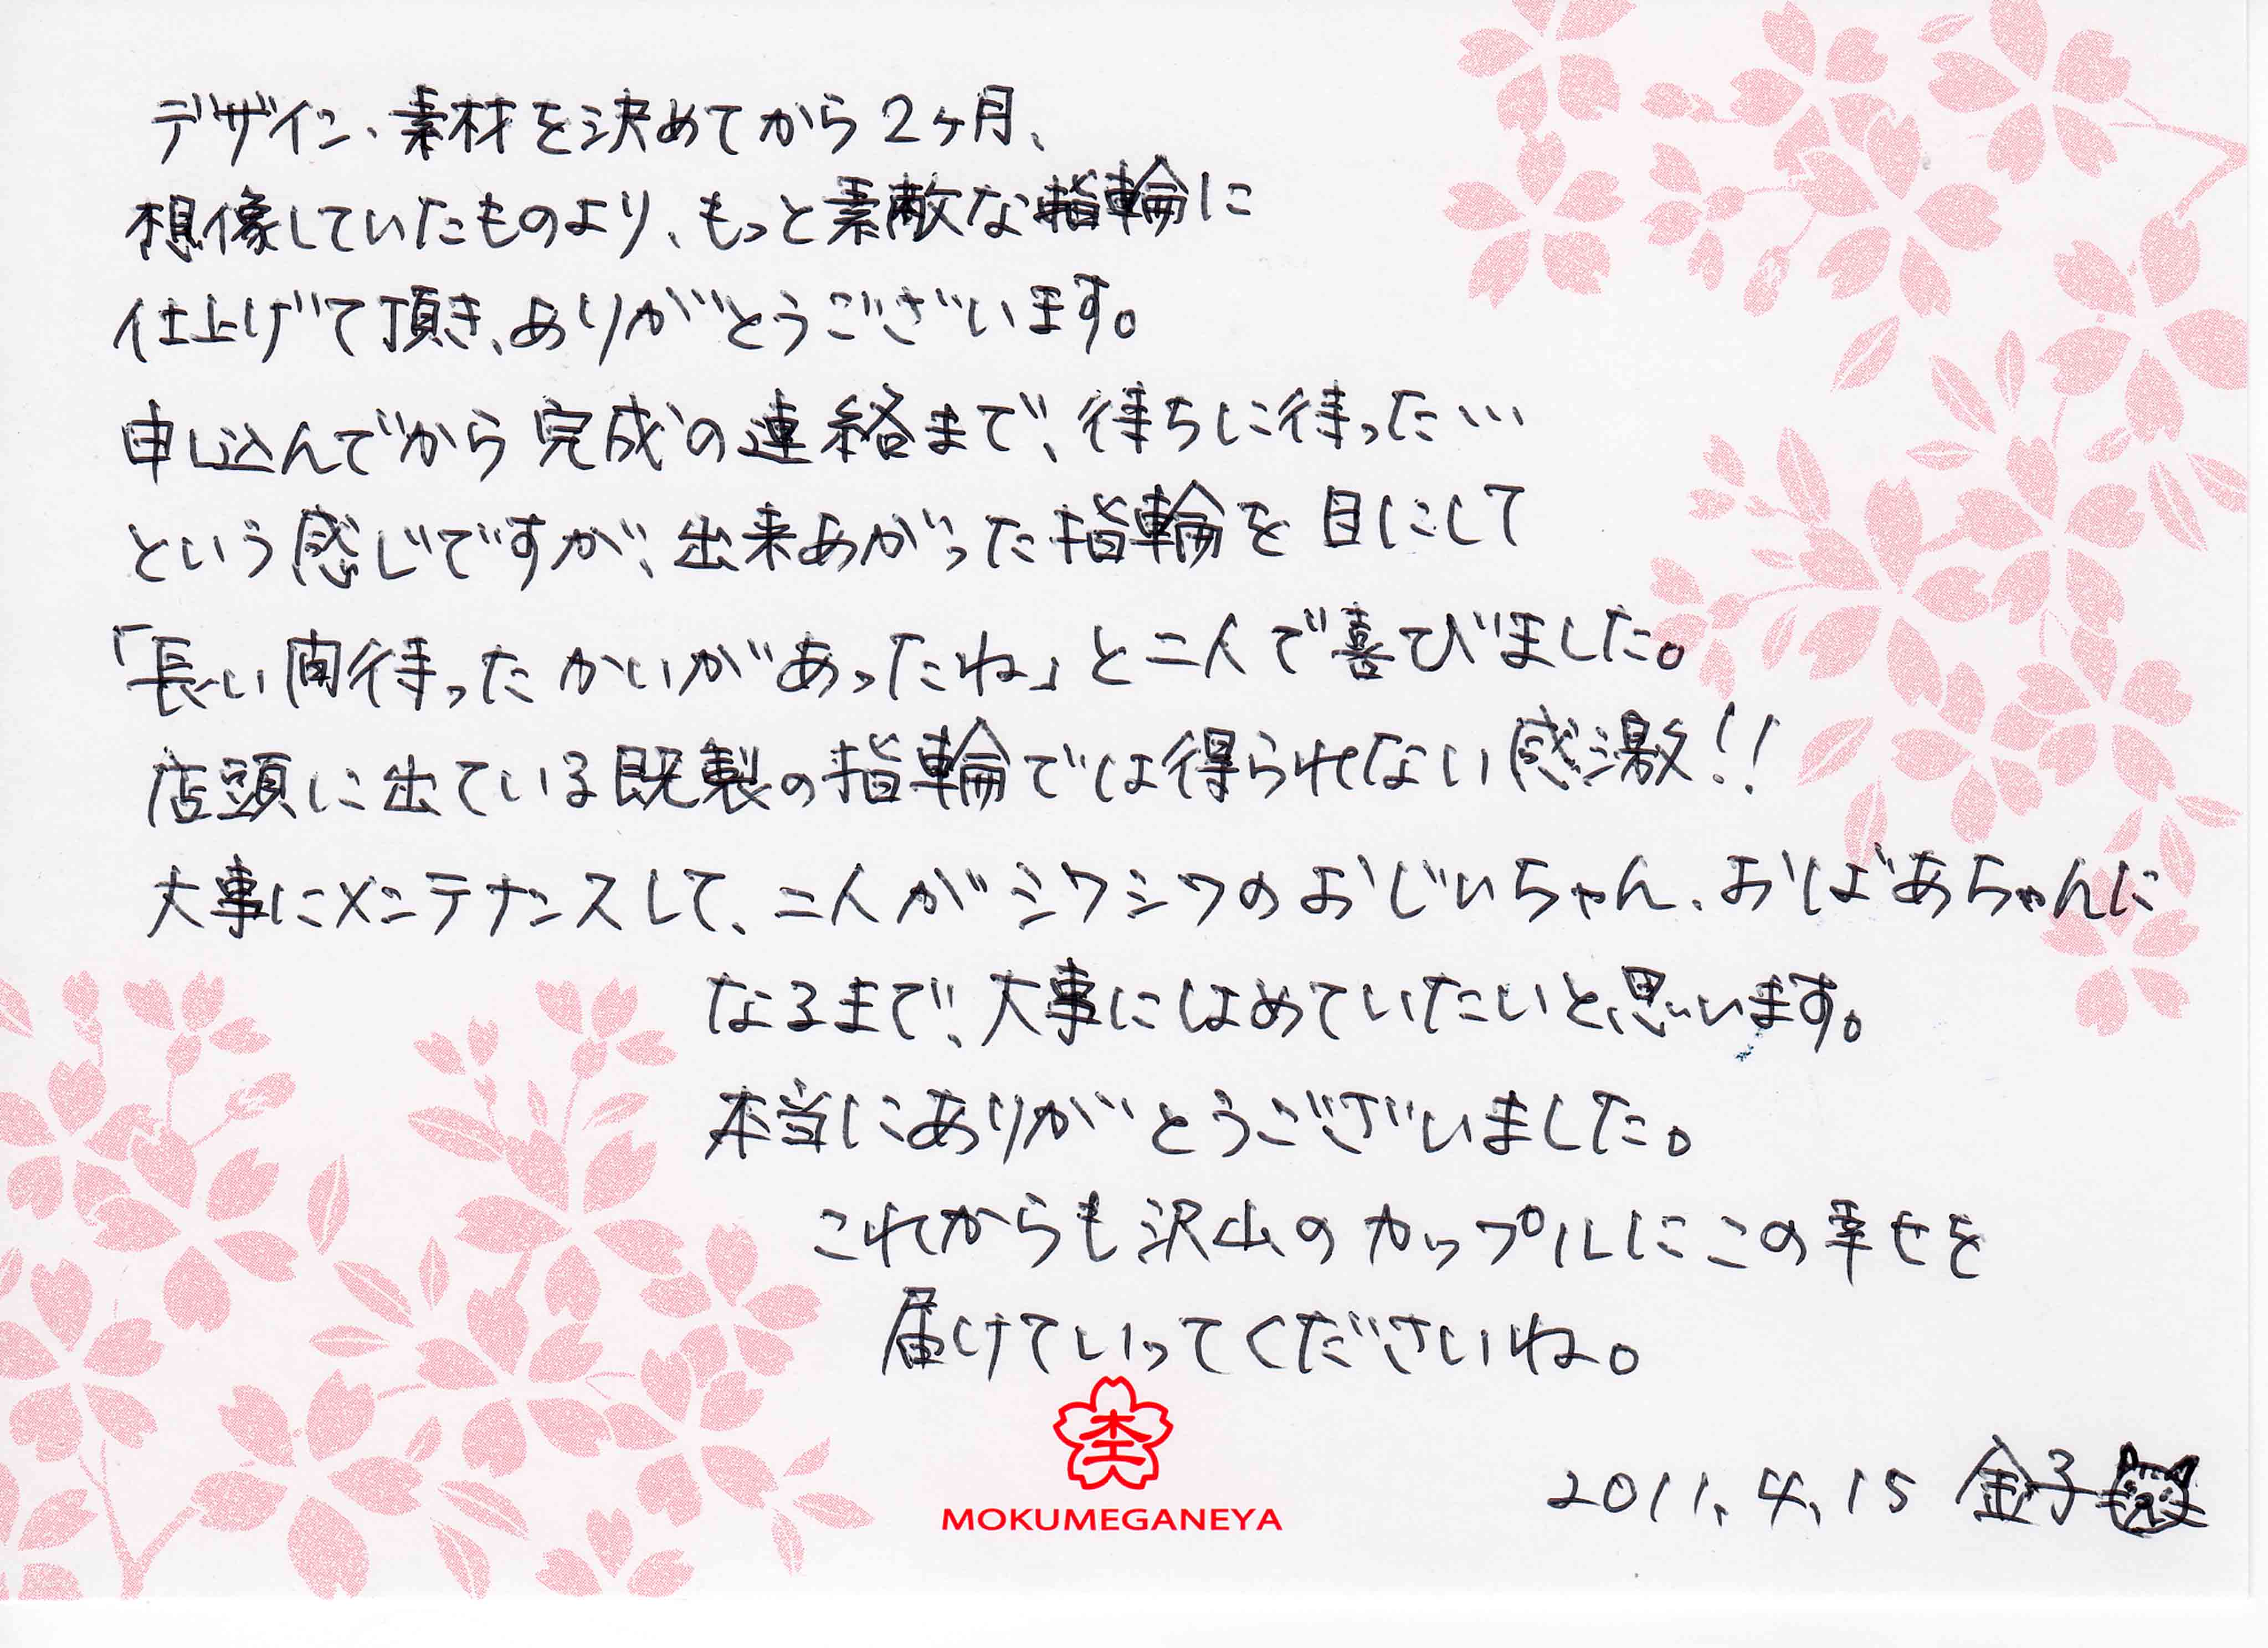 デザイン、素材を決めてから2ヶ月、
想像していたものより、もっと素敵な指輪に
仕上げて頂き、ありがとうございます。
申し込んでから完成の連絡まで、待ちに待った…
という感じですが、出来あがった指輪を目にして
「長い間待ったかいがあったね」と二人で喜びました。
店頭に出ている既製の指輪では得られない感激!!
大事にメンテナンスして、二人がシワシワのおじいちゃん、おばあちゃんに
なるまで、大事にはめていたいと思います。
本当にありがとうございました。
これからも沢山のカップルにこの幸せを
届けていってくださいね。
杢
MOKUMEGANEYA
2011.4.15 金子